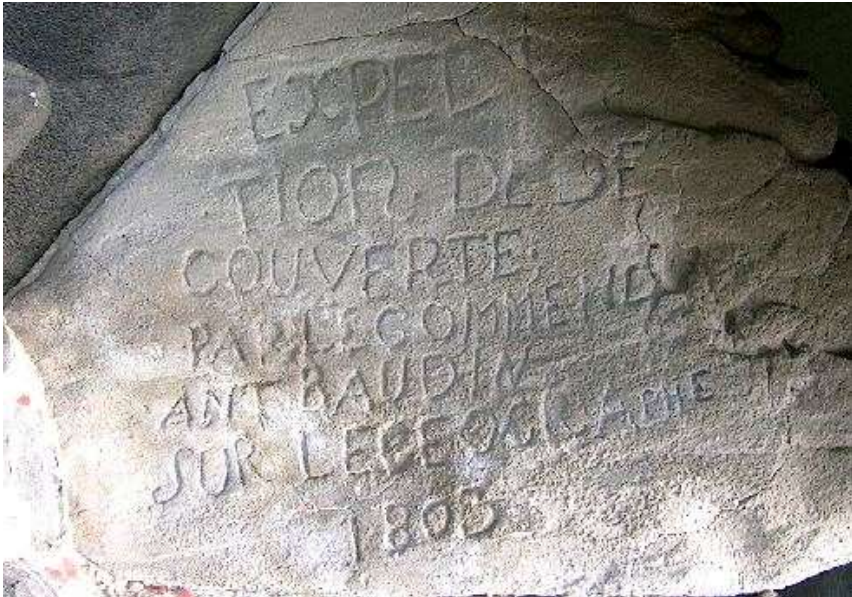 EXPED
TION. DE DE
COUVERTE.
PAR LE COMMEND
ANT BAUDIN
SUR LE GEOGRAPHE
1803